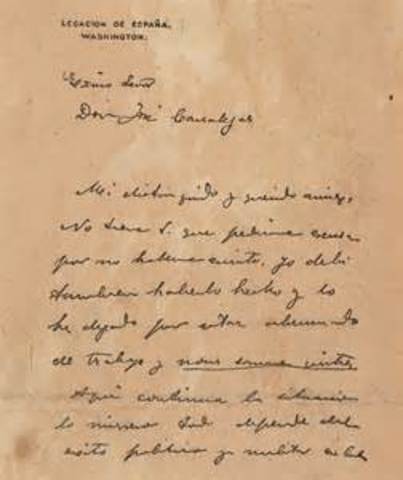 LEGACION DE ESPAÑA.
WASHINGTON.
Excmo Señor
Don José Canalejas
Mi distinguido y querido amigo:
No tiene V. que pedirme excusas
por no haberme escrito. Yo debí
también haberlo hecho y lo
he dejado por estar abrumado
de trabajo y nous sommes quittes
Aquí continúa la situación
lo mismo. Todo depende del
éxito político y militar en